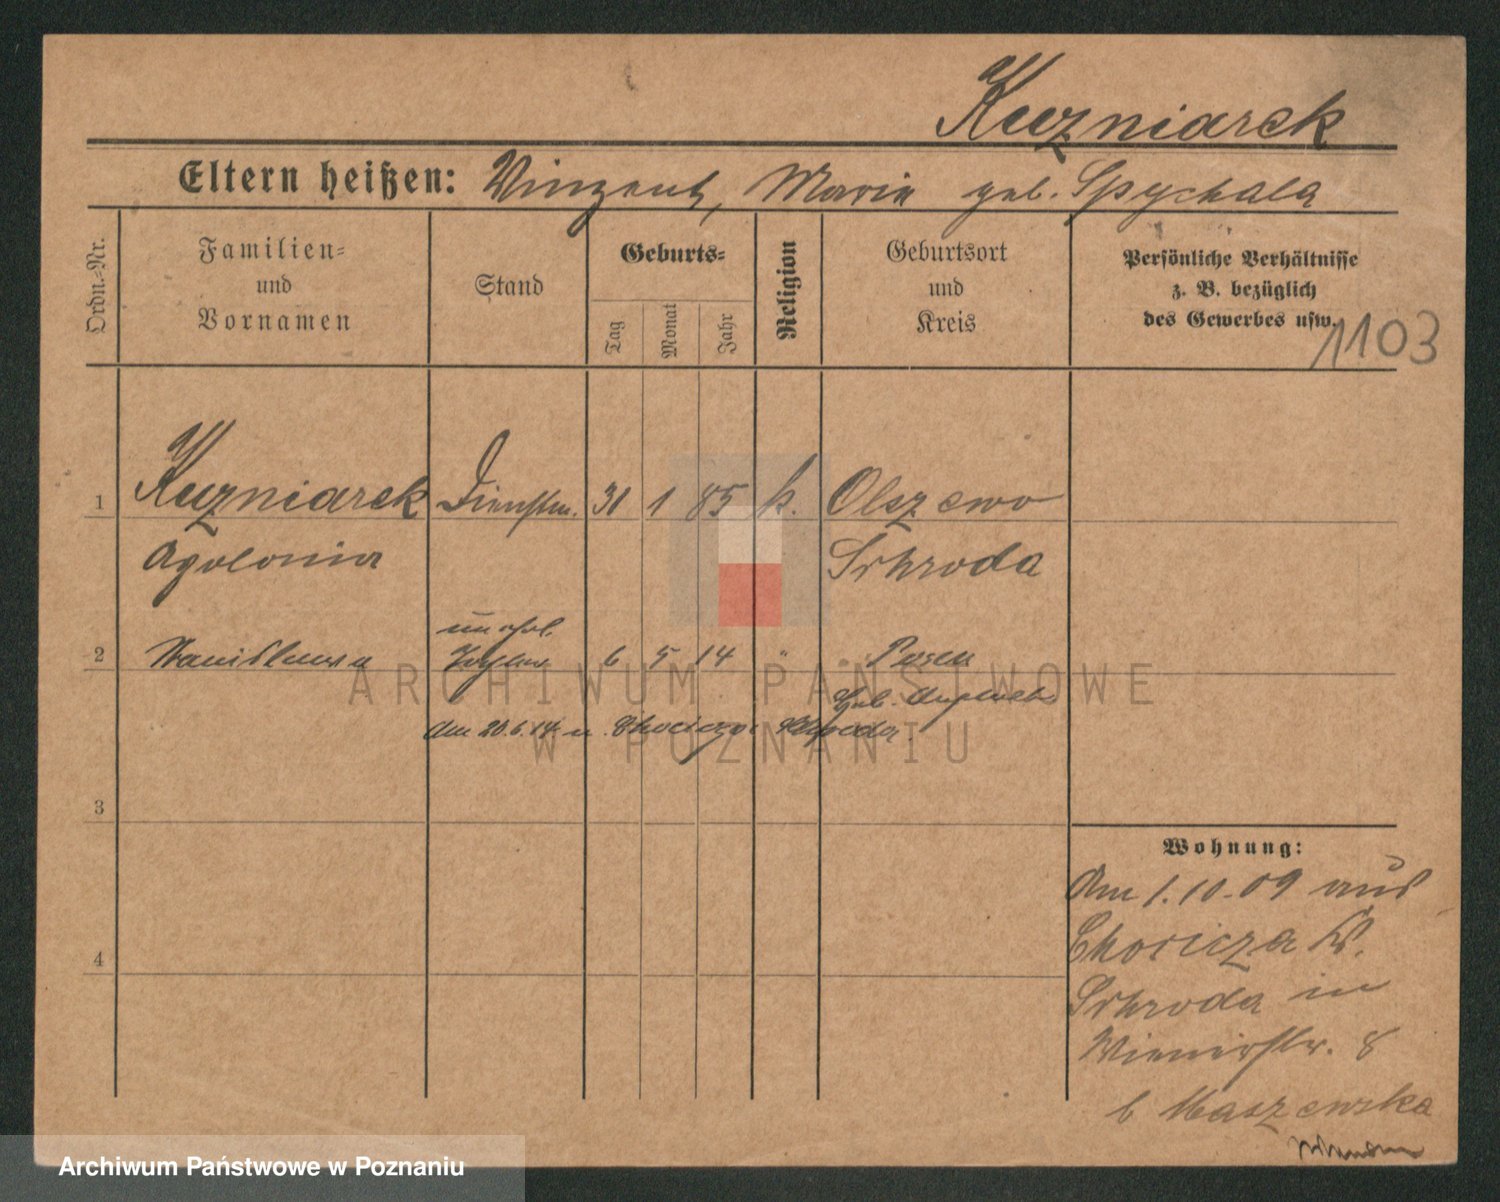 Kuzniarek
Eltern heißen: Vinzent, Marie geb. Spychala
Ordn.-Nr.
Familien- und Vornamen
Stand
Geburts-
Tag
Monat
Jahr
Religion
Geburtsort und Kreis
Persönliche Verhältnisse
z. B. bezüglich
des Gewerbes usw.
1103
1 Kuzniarek Dienstm. 31 1 85 k. Olszewo
Apolonia Schroda
unehel.
2 Stanislawa Tochter 6 5 14 " Posen
Geb.
Am 20.6.14 n. Chocicza Schroda.
3
4
Wohnung:
Am 1.10.09 aus
Chocicza Kr.
Schroda in
Wienerstr. 8
b Maszewska
ARCHIWUM PAŃSTWOWE
W POZNANIU
Archiwum Państwowe w Poznaniu